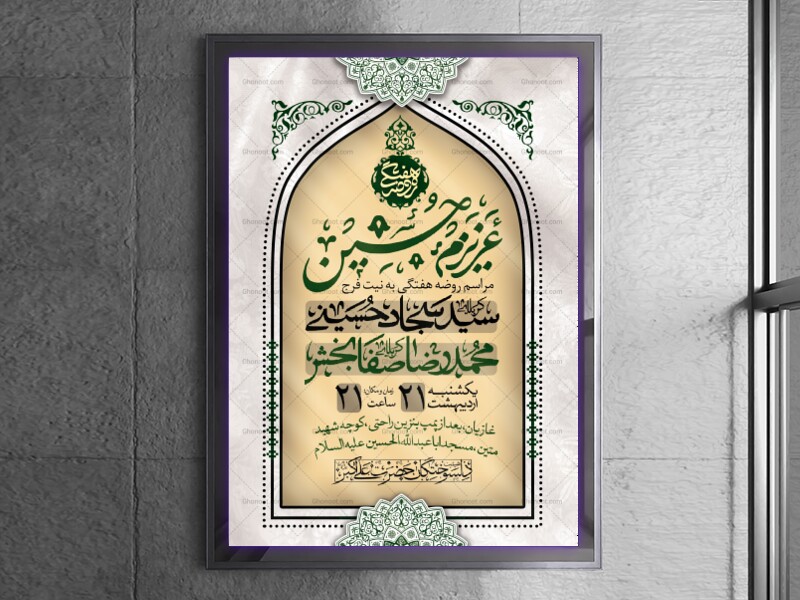 روضه هفتگی
عزیزم حسین
مراسم روضه هفتگی به نیت فرج
کربلائی سید سجاد حسینی
کربلائی محمدرضا صفابخش
یکشنبه ۲۱ اردیبهشت
زمان و مکان: ساعت ۲۱
غازیان، بعد از پمپ بنزین راحتی، کوچه شهید
متین، مسجد اباعبدالله الحسین علیه السلام
دلسوختگان حضرت علی اکبر
Ghonoot.com